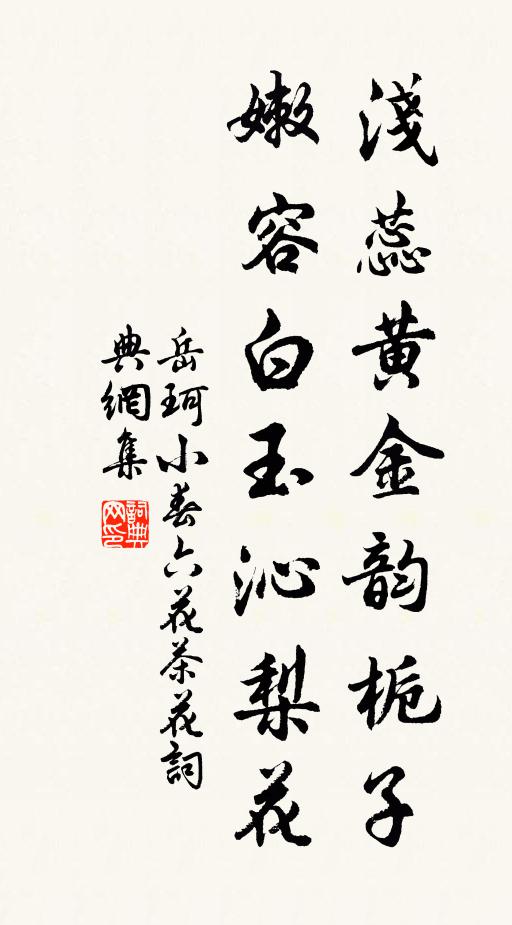 淺蕊黄金韵栀子
嫩容白玉沁梨花
岳珂小春六花茶花詞
典網集
詞典网印